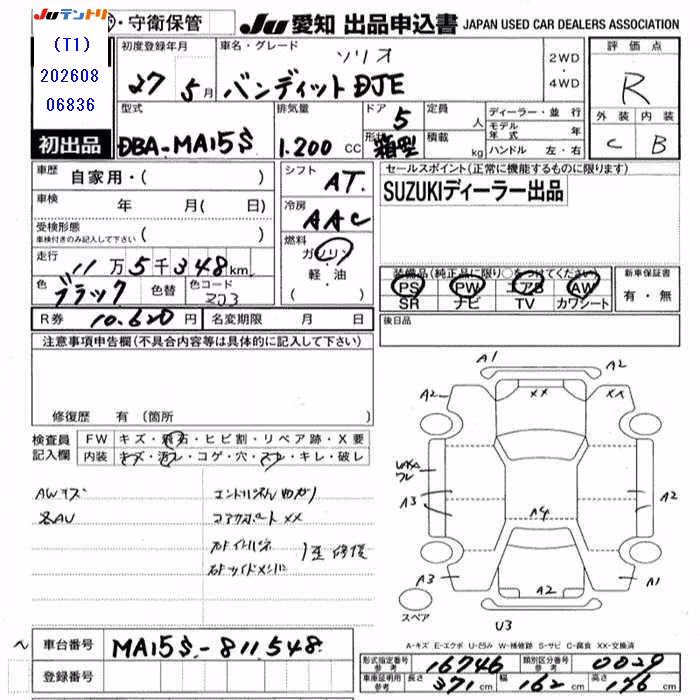 Juテントリ ・守衛保管 Ju 愛知 出品申込書 JAPAN USED CAR DEALERS ASSOCIATION
(T1)
202608
06836
初出品
初度登録年月 車名・グレード ソリオ 2WD ・ 4WD 評価点
27 5月 バンディット DJE R
型式 排気量 ドア 5 定員 人 ディーラー・並行 外装 内装
DBA-MA15S 1.200 cc 形状 箱型 積載 kg モデル年式 年 C B
ハンドル 左・右
車歴 自家用・( ) シフト AT. セールスポイント(正常に機能するものに限ります)
車検 年 月( 日) 冷房 AAC SUZUKIディーラー出品
受検形態
車検付きのみ記入して下さい ( ) 燃料 ガソリン
走行 11万5千348km 軽・油 装備品(純正品に限り○をつけてください) 新車保証書
色 ブラック 色替 色コード ZJ3 ( ) PS PW エアB AW 有・無
SR ナビ TV カワシート
R券 10.620円 名変期限 月 日 後日品
注意事項申告欄(不具合内容等は具体的に記入して下さい)
修復歴 有 (箇所
検査員 FW キズ・飛石・ヒビ割・リペア跡・X要
記入欄 内装 キズ・汚レ・コゲ・穴・スレ・キレ・破レ
AWキズ
各AU コアサポートXX
A1
A2 XX XX A2
A3 A3 A4 A2
A3 A2 A1
スペア U3
A-キズ E-エクボ U-凹み W-補修跡 S-サビ C-腐食 XX-交換済
車台番号 MA15S-811548 型式指定番号 参考 16746 類別区分番号 参考 0029
登録番号 車庫証明用 参考 長さ 371cm 幅 162cm 高さ 176cm